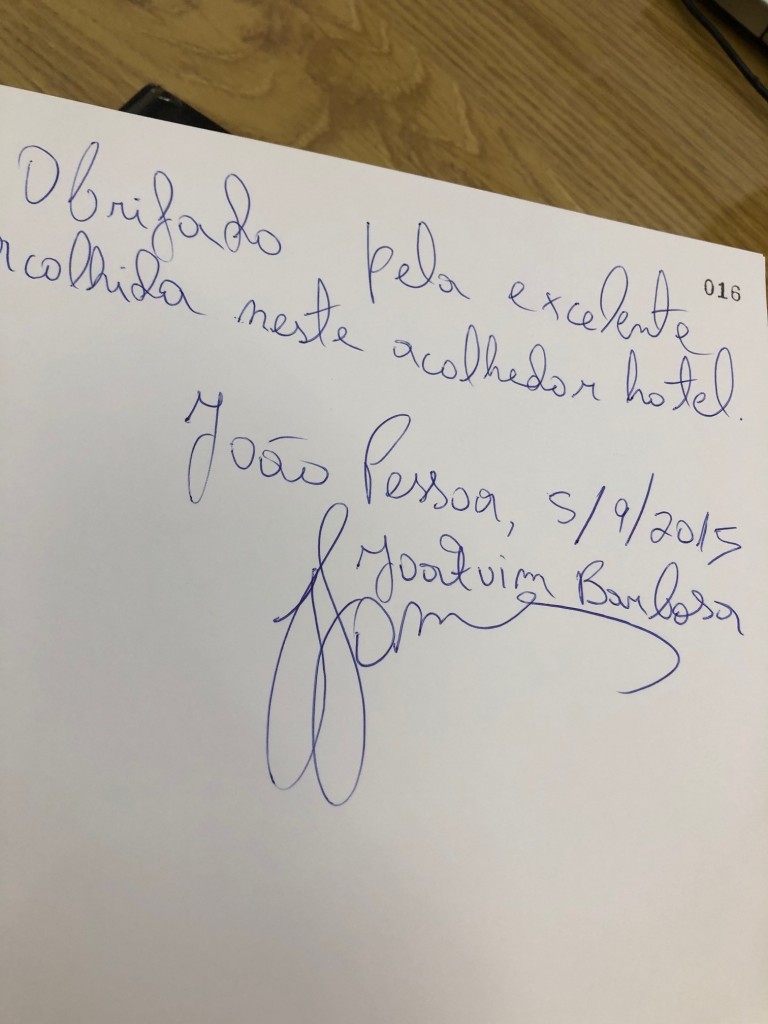 Obrigado pela excelente
016
acolhida neste acolhedor hotel.
João Pessoa, 5/9/2015
Joaquim Barbosa